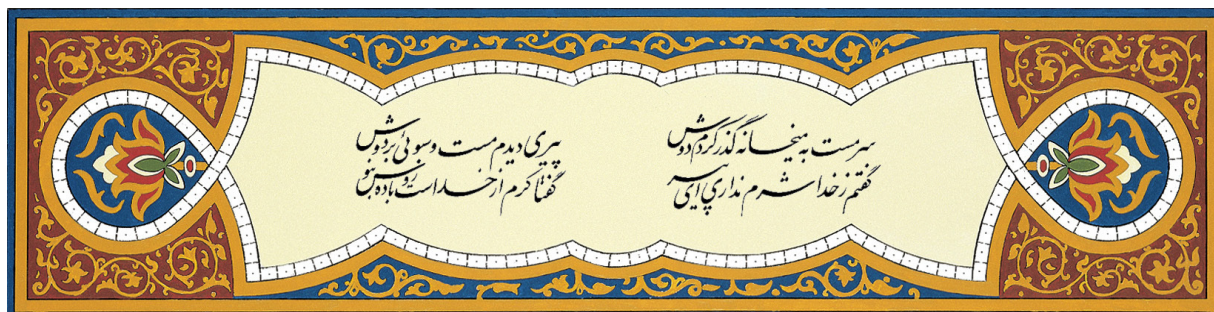 سرمست به میخانه گذر کردم دوش
پیری دیدم مست و سبوئی بر دوش
گفتم ز خدا شرم نداری ای پیر
گفتا کرم از خداست رو باده بنوش